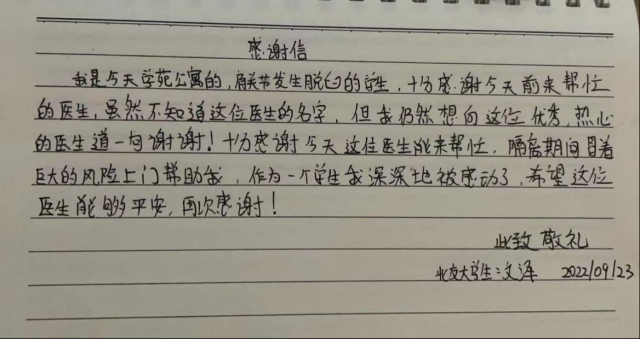 感谢信
我是今天学苑公寓的,肩关节发生脱臼的学生,十分感谢今天前来帮忙
的医生,虽然不知道这位医生的名字,但我仍然想向这位优秀,热心
的医生道一句谢谢!十分感谢今天这位医生能来帮忙,隔离期间冒着
巨大的风险上门帮助我,作为一个学生我深深地被感动了,希望这位
医生能够平安,再次感谢!
此致敬礼
北交大学生:文泽 2022/09/23